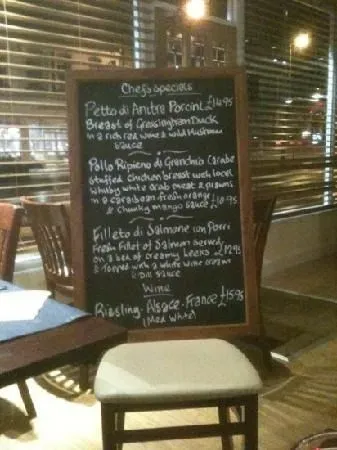 Chefs specials
Petto di Anitra Porcini £14.95
Breast of Gressingham Duck
in a rich red wine & wild Mushroom
sauce
Pollo Ripieno di Granchio Caraibe
stuffed chicken breast with local
Whitby white crab meat & prawns
in a caraibean fresh orange
& chunky mango sauce £16.95
Filleto di Salmone con Porri
Fresh Fillet of Salmon served
on a bed of creamy leeks £12.95
& topped with a white wine cream
& Dill sauce
Wine
Riesling - Alsace - France £15.95
(Med White)